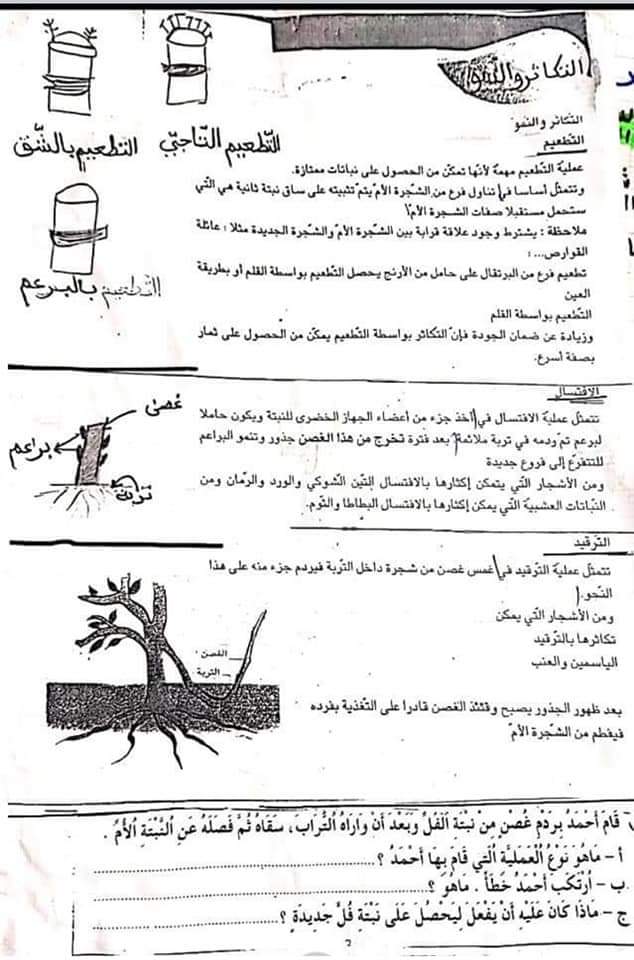 التكاثر والنموّ
التكاثر والنمو
التطعيم
عملية التطعيم مهمة لأنها تمكّن من الحصول على نباتات ممتازة.
وتتمثل أساسا في تناول فرع من الشجرة الأم يتم تثبيته على ساق نبتة ثانية هي التي
ستحمل مستقبلا صفات الشجرة الأم
ملاحظة : يشترط وجود علاقة قرابة بين الشجرة الأم والشجرة الجديدة مثلا : عائلة
القوارص...:
تطعيم فرع من البرتقال على حامل من الأرنج يحصل التطعيم بواسطة القلم أو بطريقة
العين
التطعيم بواسطة القلم
وزيادة عن ضمان الجودة فإنّ التكاثر بواسطة التطعيم يمكّن من الحصول على ثمار
بصفة أسرع.
التطعيم بالشّق
التطعيم التّاجيّ
التطعيم بالبرعم
الافتسال
تتمثل عملية الافتسال في أخذ جزء من أعضاء الجهاز الخضري للنبتة ويكون حاملا
لبرعم ثم ودمه في تربة ملائمة بعد فترة تخرج من هذا الغصن جذور وتنمو البراعم
للتتفرّع إلى فروع جديدة
ومن الأشجار التي يتمكن إكثارها بالافتسال التين الشوكي والورد والرمّان ومن
النباتات العشبية التي يمكن إكثارها بالافتسال البطاطا والثوم.
غصن
براعم
تربة
الترقيد
تتمثل عملية الترقيد في غمس غصن من شجرة داخل التربة فيردم جزء منه على هذا
النحو.
ومن الأشجار التي يمكن
تكاثرها بالترقيد
الياسمين والعنب
الغصن
التربة
بعد ظهور الجذور يصبح وقتئذ الغصن قادرا على التغذية بمفرده
فيفطم من الشجرة الأم
قَامَ أَحْمَدُ بِرَدْمِ غُصْنٍ مِنْ نَبْتَةِ الْفُلِّ وَبَعْدَ أَنْ وَارَاهُ التُّرَابَ، سَقَاهُ ثُمَّ فَصَلَهُ عَنِ النَّبْتَةِ الْأُمِّ .
أ - مَاهُوَ نَوْعُ الْعَمَلِيَّةِ الَّتِي قَامَ بِهَا أَحْمَدُ ؟ ..........
ب - اُرْتَكَبَ أَحْمَدُ خَطَأً . مَاهُوَ ؟ ..........
ج - مَاذَا كَانَ عَلَيْهِ أَنْ يَفْعَلَ لِيَحْصُلَ عَلَى نَبْتَةِ فُلٍّ جَدِيدَةٍ ؟ ..........